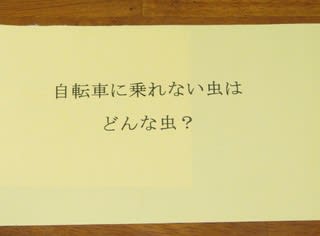 自転車に乗れない虫は
どんな虫？